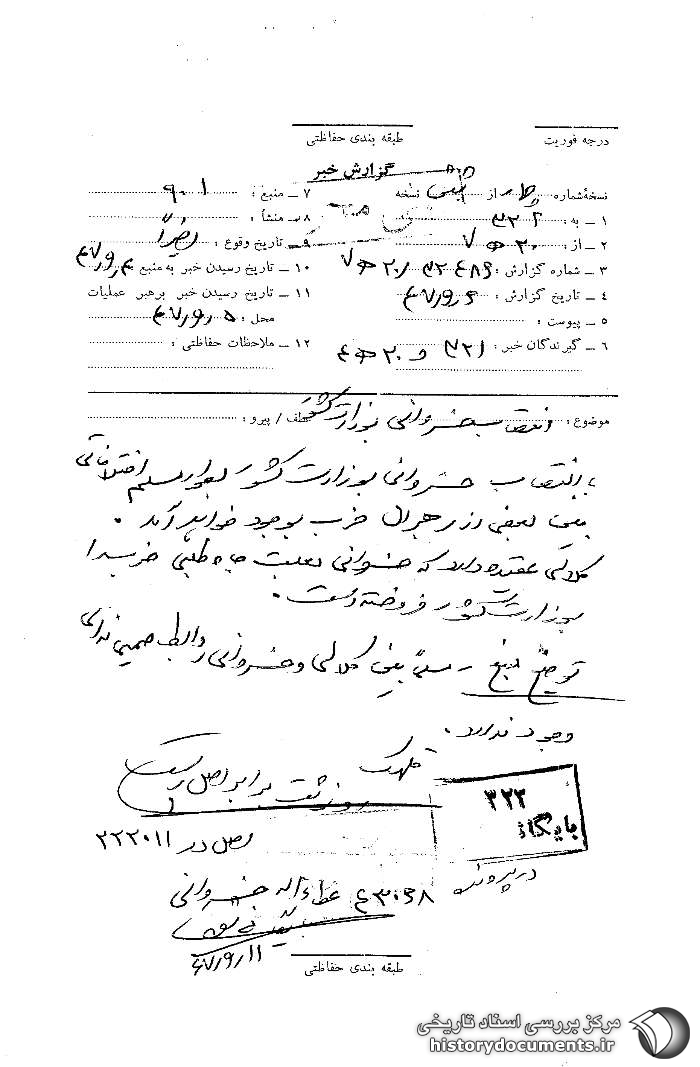 درجه فوریت
طبقه بندی حفاظتی
گزارش خبر
نسخهٔ شماره چهار از نسخه
۱ ــ به : ۳۲۲
۲ ــ از : ۲۰ ه ۷
۳ ــ شماره گزارش : ۳۲۴۸۶ / ۲۰ ه ۷
٤ ــ تاریخ گزارش : ۴۷/۹/۶
٥ ــ پیوست :
٦ ــ گیرندگان خبر : ۳۲۱ و ۲۰ ه ۴
۷ ــ منبع : ۹۰۱
۸ ــ منشأ :
۹ ــ تاریخ وقوع : اخیراً
۱۰ ــ تاریخ رسیدن خبر به منبع ۴۷/۹/۴
۱۱ ــ تاریخ رسیدن خبر برهبر عملیات
محل : ۴۷/۹/۵
۱۲ ــ ملاحظات حفاظتی :
موضوع : انتصاب خسروانی بوزارت کشور
عطف / پیرو :
با انتصاب خسروانی بوزارت کشور بطور مسلم اختلافاتی
بین بعضی از رهبران حزب بوجود خواهد آمد .
کلالی عقیده دارد که خسروانی بعلت جاه طلبی حزب را
بوزارت کشور فروخته است .
توضیح منبع ـ مسلماً بین کلالی و خسروانی روابط صمیمانه‌ای
وجود ندارد .
گلهرگ
رونوشت برابر اصل است
اصل در ۳۲۲۰۱۱
۳۲۲
بایگانی
در پرونده ۳۰۶۸ع عطاءاله خسروانی
۴۷/۹/۱۱
طبقه بندی حفاظتی
مرکز بررسی اسناد تاریخی
historydocuments.ir